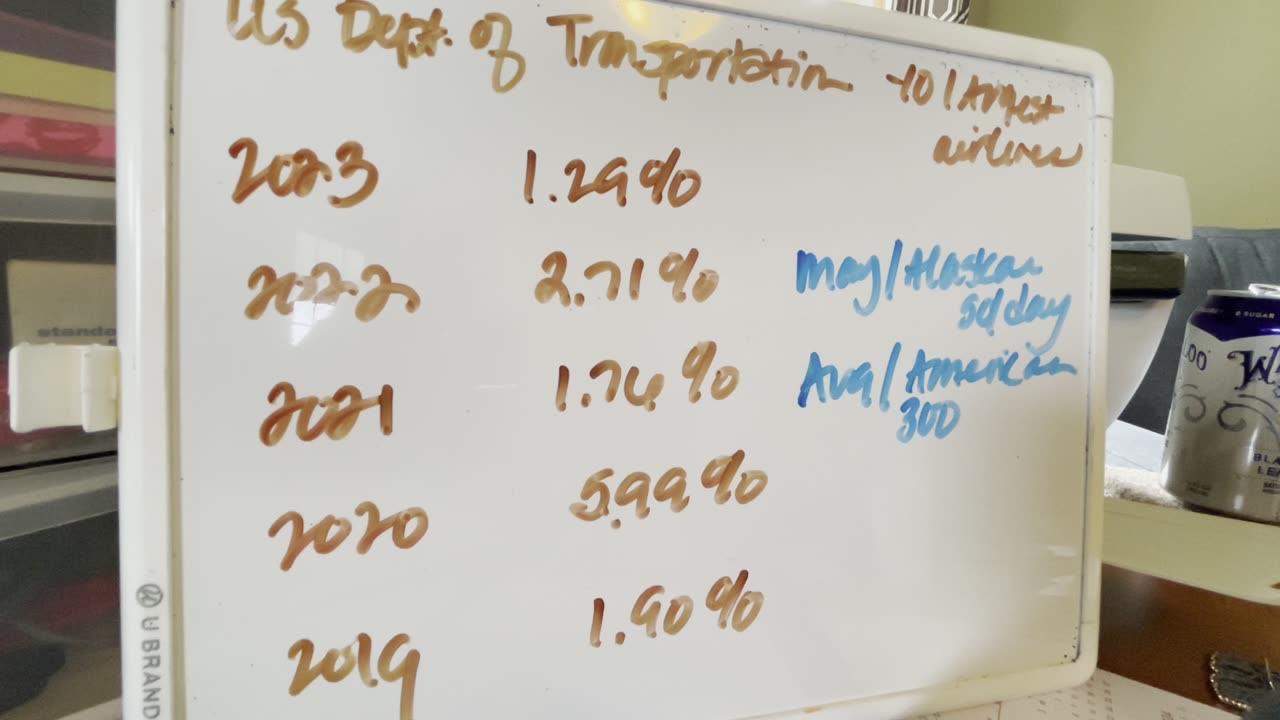 US Dept. of Transportation -10 largest
airlines
2023 1.29%
2022 2.71% May/Alaskan
50/day
2021 1.76% Aug/American
300
2020 5.99%
2019 1.90%
U BRAND
standa
0 SUGAR
100
W
BLA